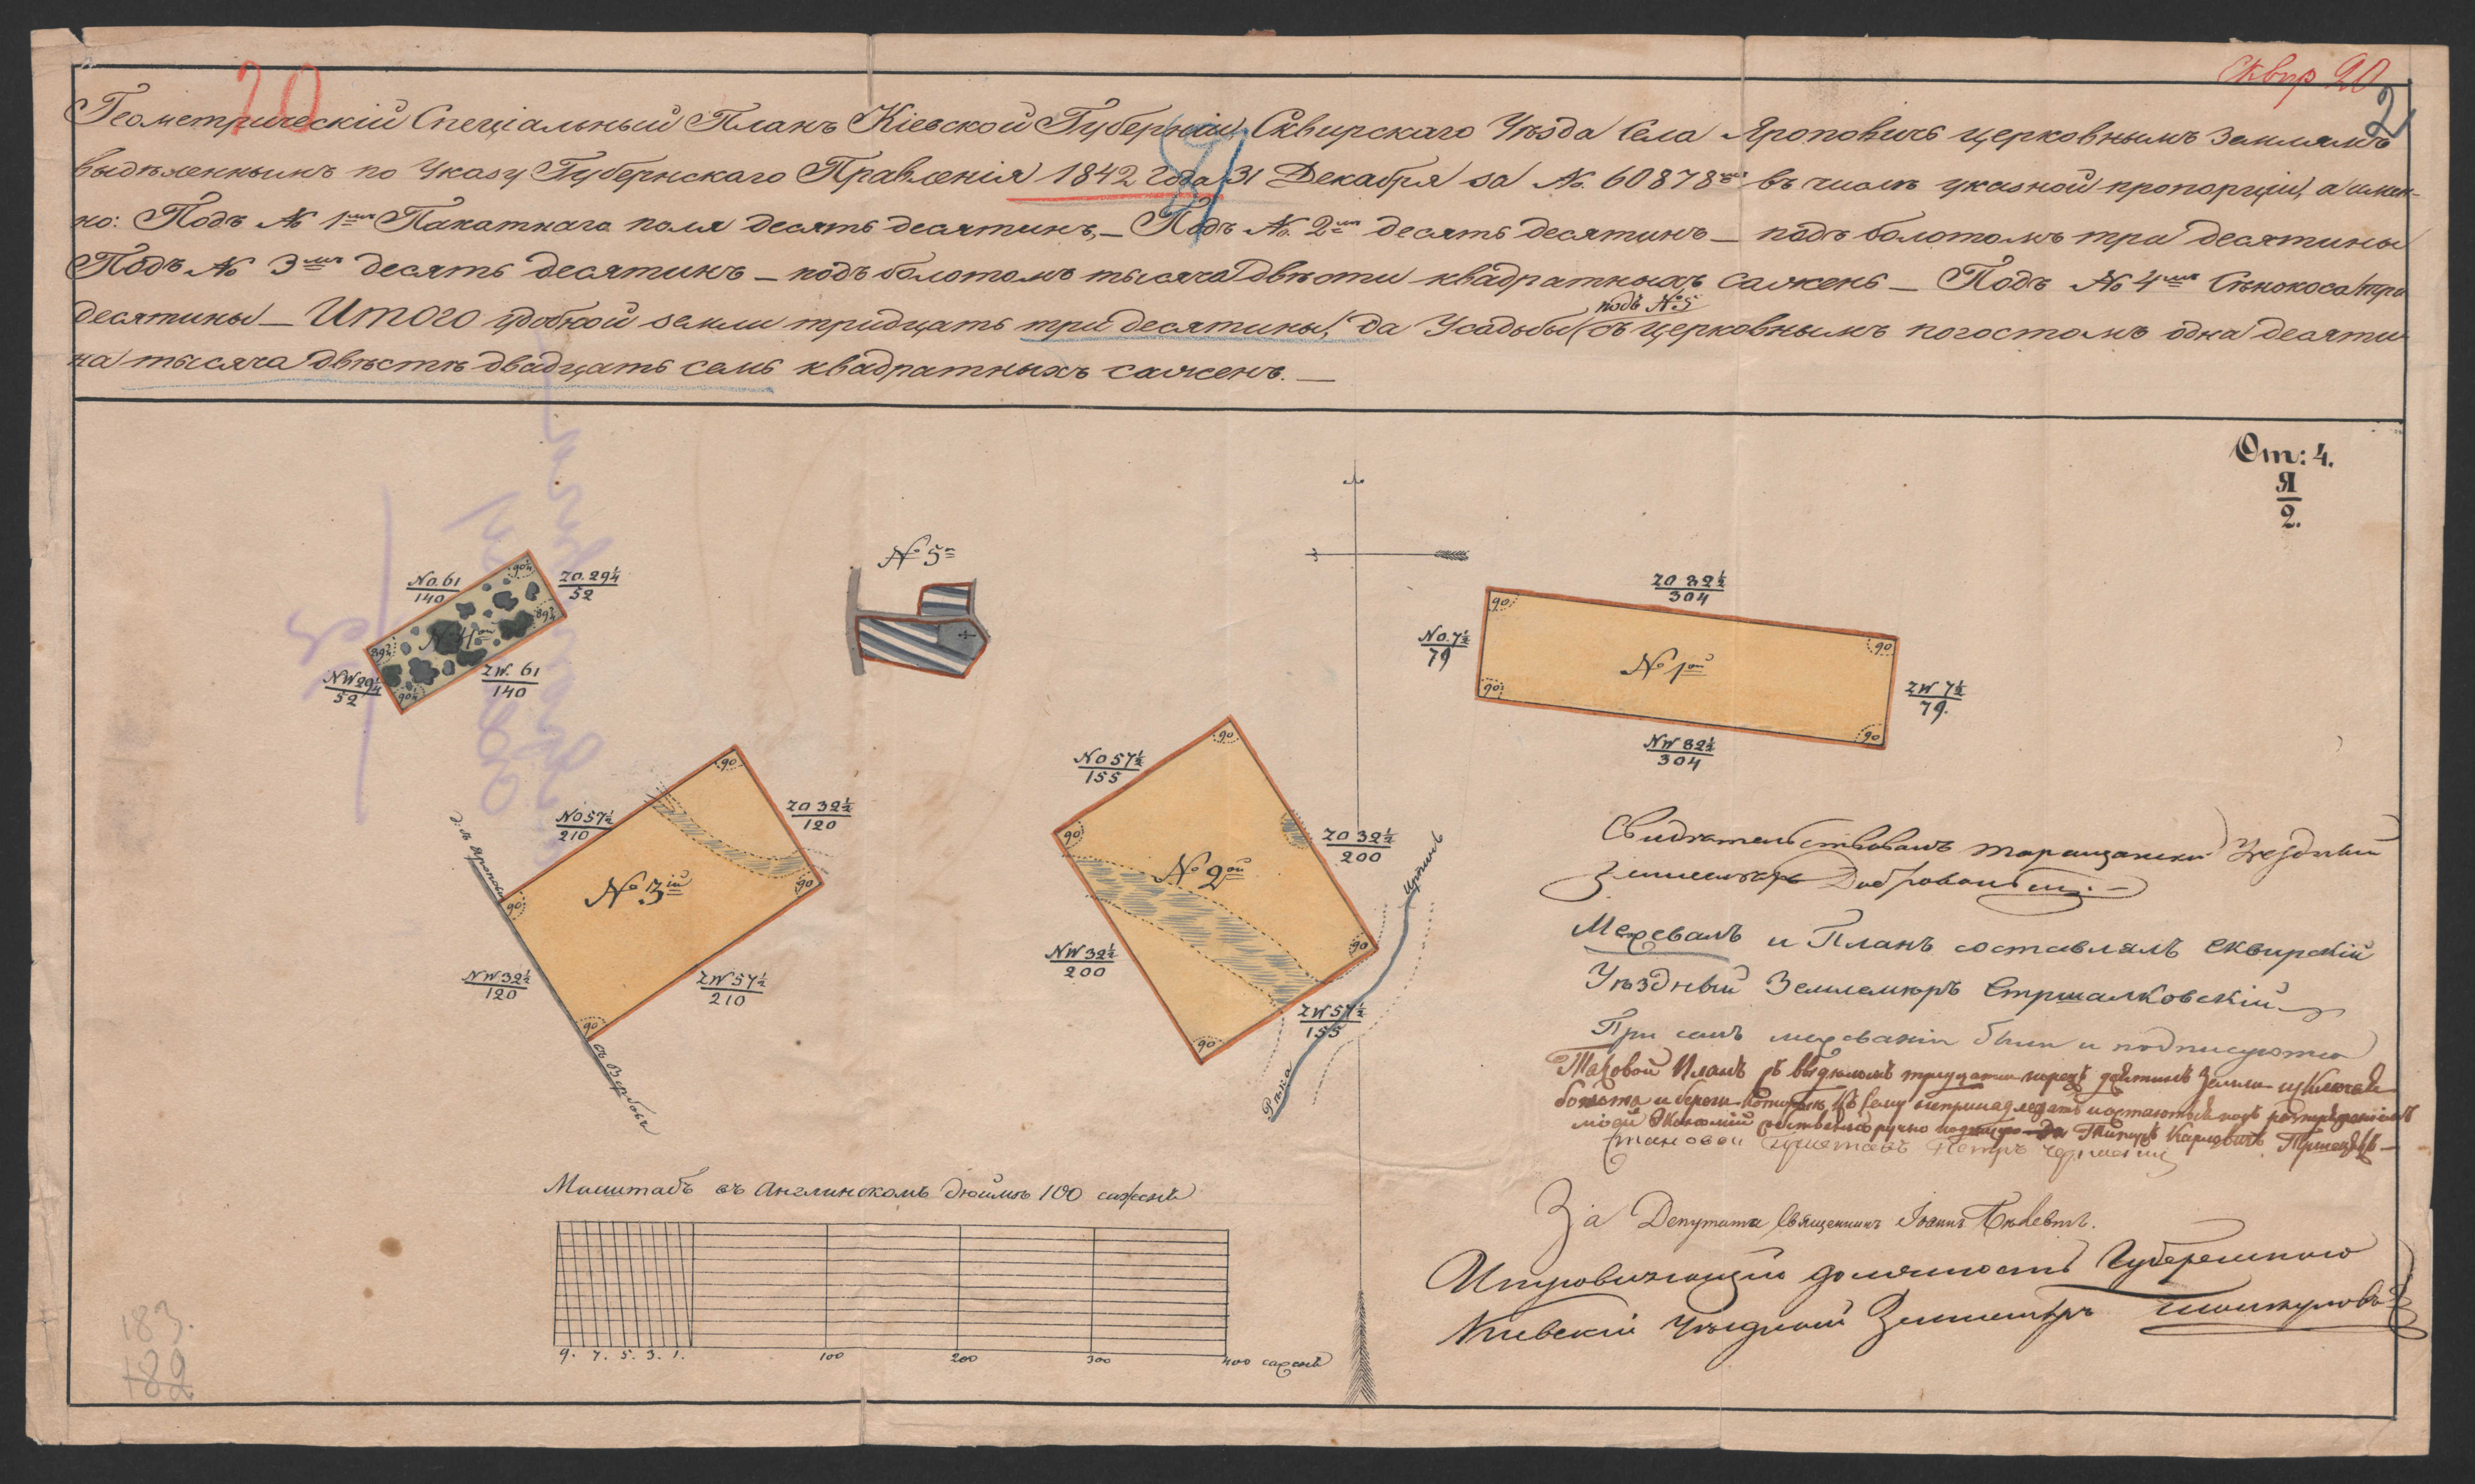 20
Сквир 20
2
Геометрическій Спеціальный Планъ Кіевской Губерніи, Сквирскаго Уѣзда Села Яроповичъ церковнымъ землямъ
выдѣленнымъ по Указу Губернскаго Правленія 1842 года 31 Декабря за № 60878мъ въ числѣ указной пропорціи, а имен-
но: Подъ № 1мъ Пахатнаго поля десять десятинъ, — Подъ № 2мъ десять десятинъ — подъ болотомъ три десятины
Подъ № 3мъ десять десятинъ — подъ болотомъ тысяча двѣсти квадратныхъ сажень — Подъ № 4мъ Сѣнокоса три
десятины — Итого удобной земли тридцать три десятины, да Усадьбы (подъ №5 съ церковнымъ погостомъ одна десяти-
на тысяча двѣстѣ двадцать семь квадратныхъ саженъ. —
От: 4.
Я
2.
№ 5й
NO. 61
140
ZO. 29¼
52
№ 4ой
NW 29¼
52
ZW. 61
140
90¼
89¾
89¾
90¼
ZO 82½
304
NO. 7½
79
№ 1ой
ZW 7½
79.
NW 82½
304
90
90
90
90
NO 57½
155
ZO 32½
200
№ 2ой
NW 32½
200
ZW 57½
155
90
90
90
90
Рѣка
Ирпень
NO 57½
210
ZO 32½
120
№ 3ій
NW 32½
120
ZW 57½
210
90
90
90
90
съ Вербова
Свидѣтельствовалъ Таращанскій Уѣздный
Землемѣръ
Межевалъ и Планъ составлялъ Сквирскій
Уѣздный Землемѣръ Стршалковскій
При семъ межеваніи были и подписуются
Таковой Планъ съ выдѣломъ тридцати трехъ десятинъ Земли
болота и береги
Становой Приставъ Петръ
За Депутата Священникъ Іоаннъ
должность Губернскаго
Кіевскій Уѣздный Землемѣръ
Масштабъ въ Англинскомъ дюймѣ 100 сажень
9. 7. 5. 3. 1. 100 200 300 400 сажень
183.
182